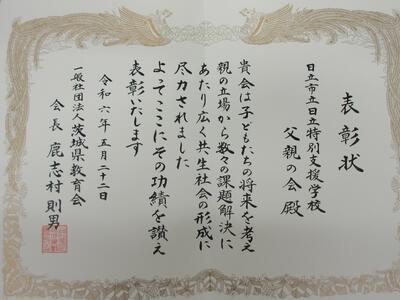 表彰状
日立市立日立特別支援学校
父親の会殿
貴会は子どもたちの将来を考え
親の立場から数々の課題解決に
あたり広く共生社会の形成に
尽力されました
よってここにその功績を讃え
表彰いたします
令和六年五月二十二日
一般社団法人茨城県教育会
会長 鹿志村則男